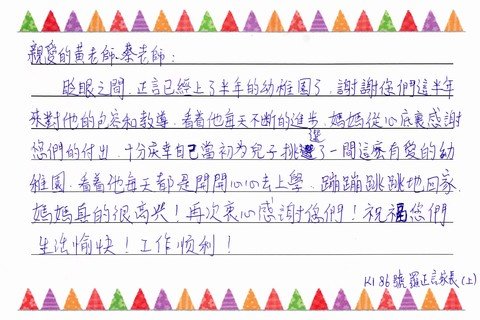 親愛的黃老師.蔡老師：
眨眼之間.正言已經上了半年的幼稚園了.謝謝您們這半年
來對他的包容和教導.看着他每天不斷的進步.媽媽從心底裏感謝
您們的付出.十分庆幸自己當初为兒子挑選了一間這麽有愛的幼
稚園.看着他每天都是開開心心去上學.蹦蹦跳跳地回家.
媽媽真的很高兴！再次衷心感謝您們！祝福您們
生活愉快！工作顺利！
K1 86號 羅正言家長(上)